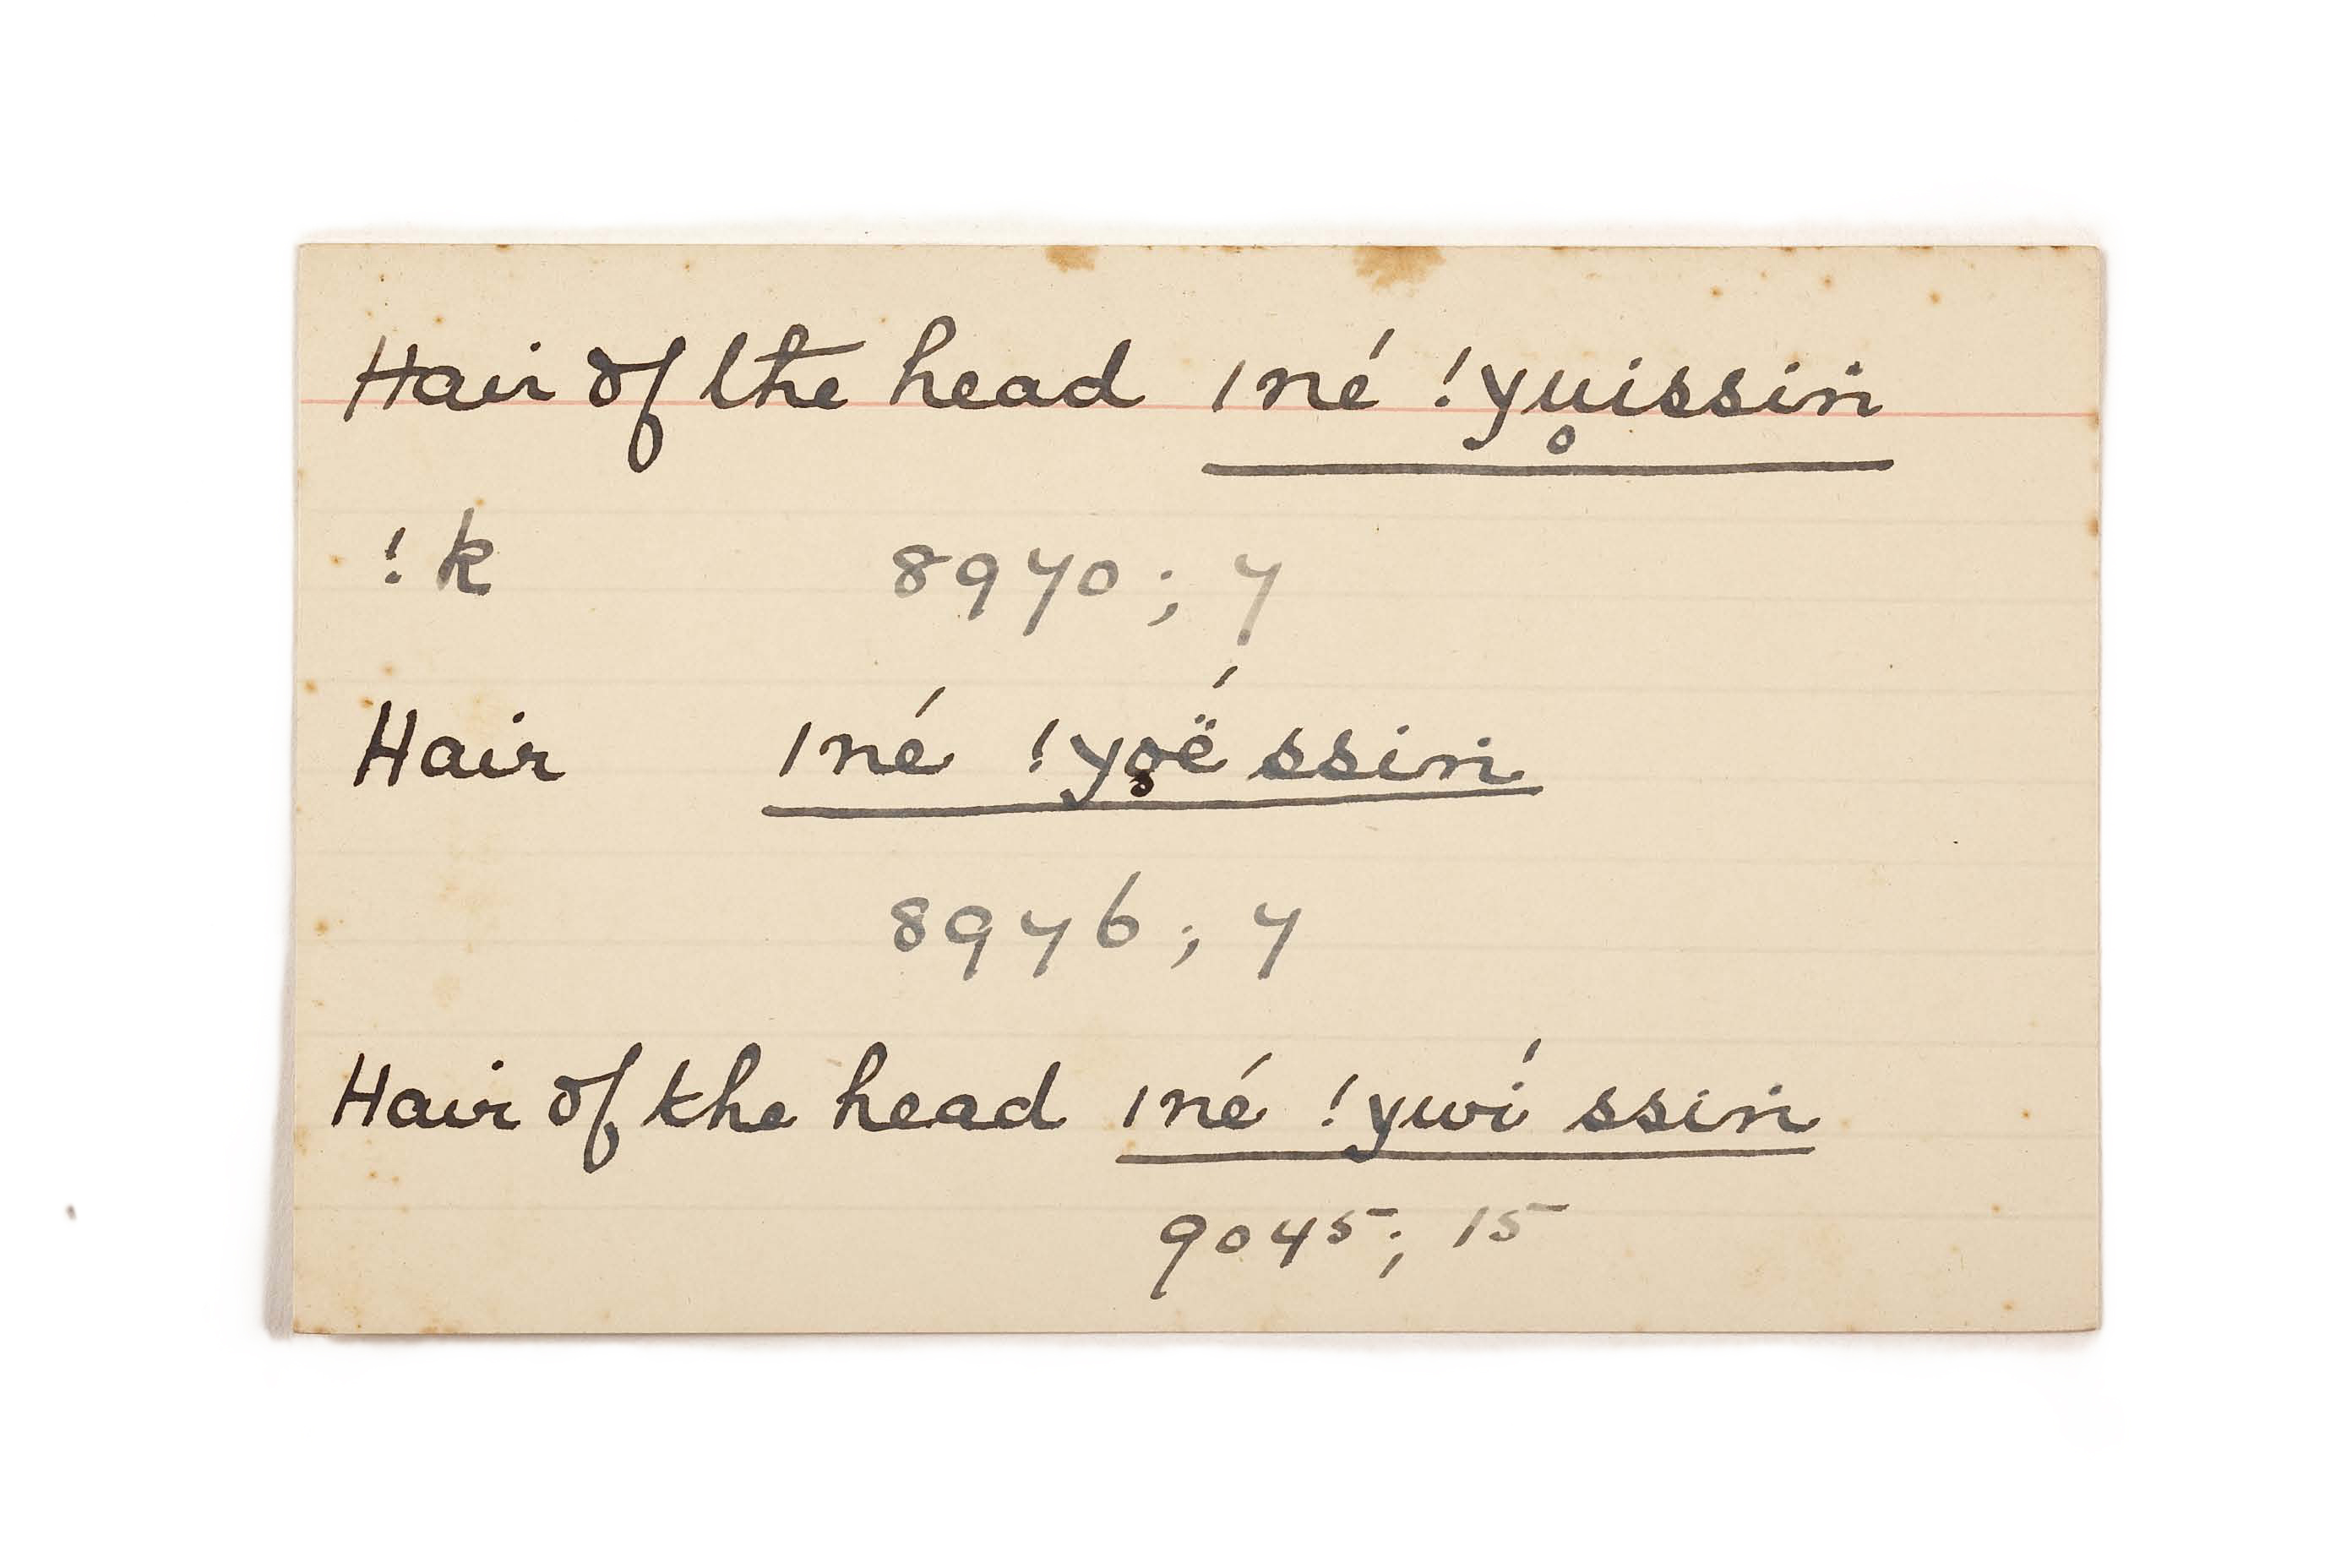 Hair of the head ǀné !yu̥issiri
!k 8970; 7
Hair ǀné !yo̥ë́ ssiri
8976; 7
Hair of the head ǀné !ywí ssiri
9045; 15